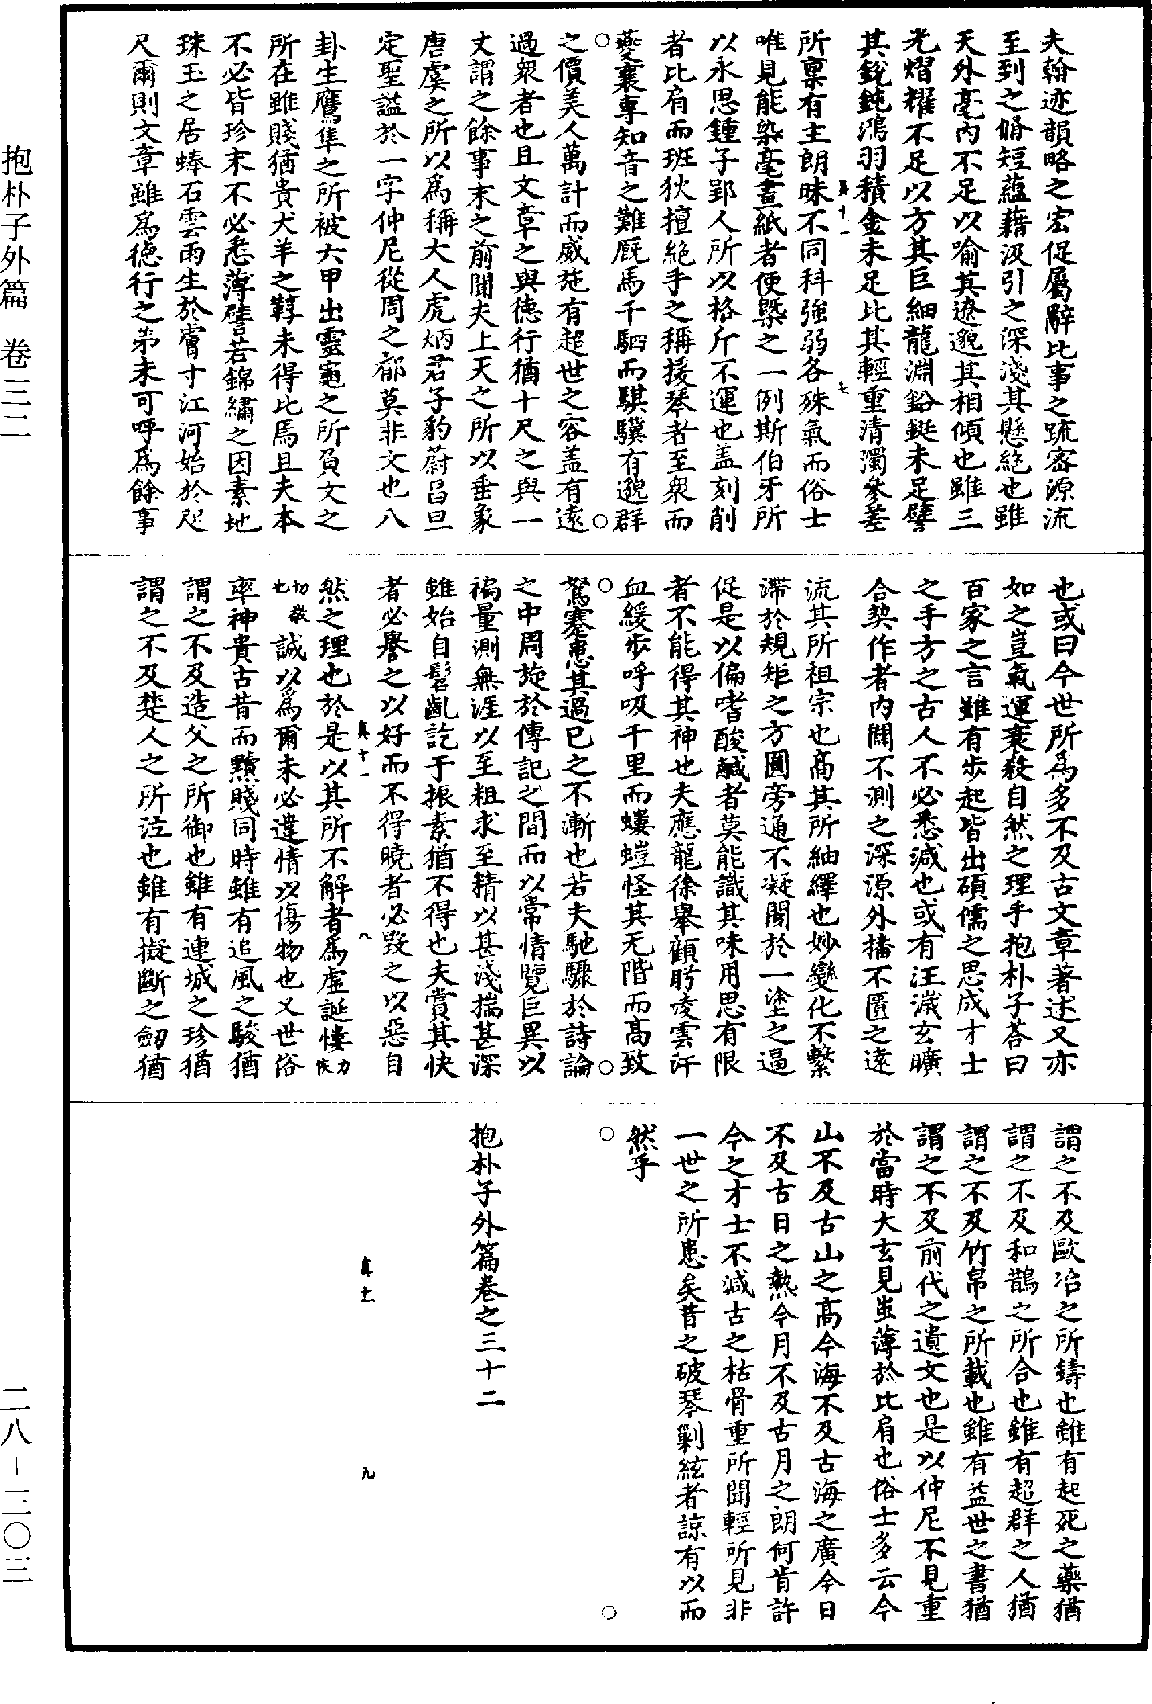 抱朴子外篇　卷三二
二八-二〇三
夫翰迹韻略之宏促屬辭比事之疏密源流
至到之脩短蘊藉汲引之深淺其懸絕也雖
天外毫內不足以喻其遼邈其相傾也雖三
光熠耀不足以方其巨細龍淵鉛鋌未足譬
其銳鈍鴻羽積金未足比其輕重清濁參差
真十一
七
所稟有主朗昧不同科強弱各殊氣而俗士
唯見能染毫畫紙者便槩之一例斯伯牙所
以永思鍾子郢人所以格斤不運也蓋刻削
者比肩而班狄擅絕手之稱援琴者至衆而
夔襄專知音之難厩馬千駟而騏驥有邈群
之價美人萬計而威施有超世之容蓋有遠
過衆者也且文章之與德行猶十尺之與一
丈謂之餘事未之前聞夫上天之所以垂象
唐虞之所以為稱大人虎炳君子豹蔚昌旦
定聖謚於一字仲尼從周之郁莫非文也八
卦生鷹隼之所被六甲出靈龜之所負文之
所在雖賤猶貴犬羊之鞟未得比焉且夫本
不必皆珍末不必悉薄譬若錦繡之因素地
珠玉之居蜯石雲雨生於膚寸江河始於咫
尺爾則文章雖為德行之弟未可呼為餘事
也或曰今世所為多不及古文章著述又亦
如之豈氣運衰殺自然之理乎抱朴子荅曰
百家之言雖有步起皆出碩儒之思成才士
之手方之古人不必悉減也或有汪濊玄曠
合契作者內闢不測之深源外播不匱之遠
流其所祖宗也高其所紬繹也妙變化不繫
滯於規矩之方圓旁通不凝閡於一塗之逼
促是以偏嗜酸鹹者莫能識其味用思有限
者不能得其神也夫應龍徐舉顧眄凌雲汗
血緩步呼吸千里而螻螘怪其无階而高致
駑蹇患其過已之不漸也若夫馳驟於詩論
之中周旋於傳記之間而以常情覽巨異以
褊量測無涯以至粗求至精以甚淺揣甚深
雖始自髫齓訖于振素猶不得也夫賞其快
者必譽之以好而不得曉者必毀之以惡自
真十一
八
然之理也於是以其所不解者為虛誕慺力侯
切敬也誠以為爾未必違情以傷物也又世俗
率神貴古昔而黷賤同時雖有追風之駿猶
謂之不及造父之所御也雖有連城之珍猶
謂之不及楚人之所泣也雖有擬斷之劒猶
謂之不及歐冶之所鑄也雖有起死之藥猶
謂之不及和鵲之所合也雖有超群之人猶
謂之不及竹帛之所載也雖有益世之書猶
謂之不及前代之遺文也是以仲尼不見重
於當時大玄見蚩薄於比肩也俗士多云今
山不及古山之高今海不及古海之廣今日
不及古日之熱今月不及古月之朗何肯許
今之才士不減古之枯骨重所聞輕所見非
一世之所患矣昔之破琴剿絃者諒有以而
然乎
抱朴子外篇卷之三十二
真十一
九